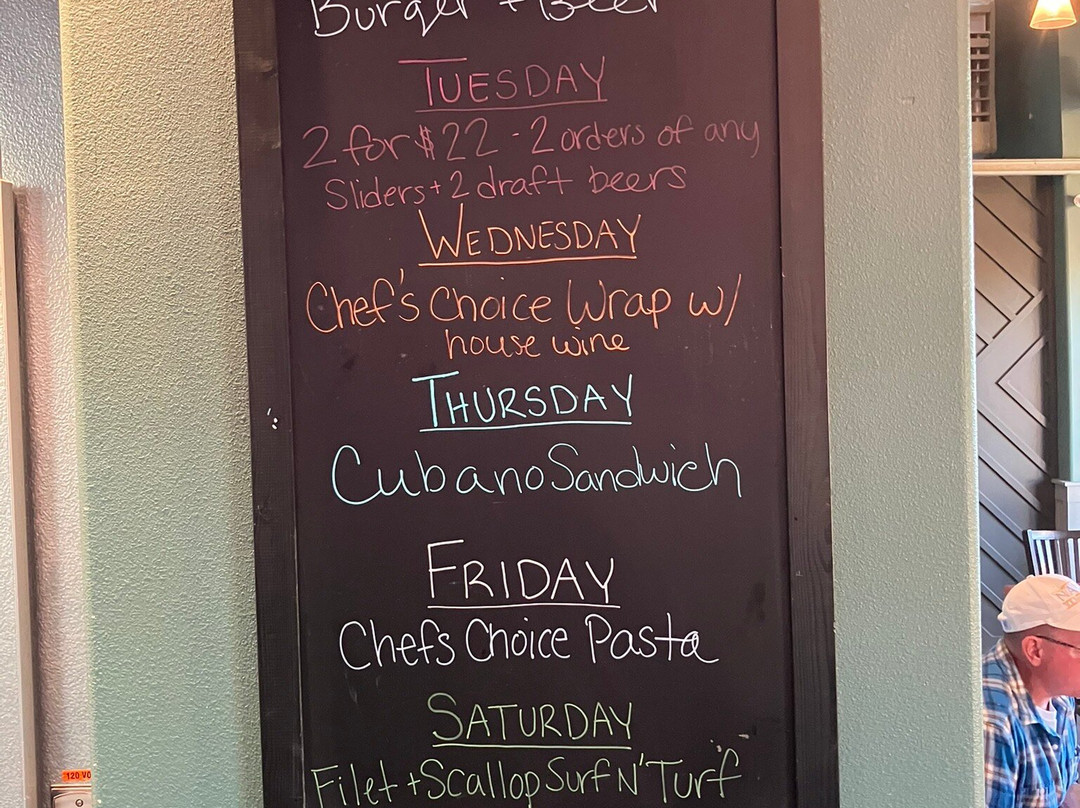 Burger + Beer
TUESDAY
2 for $22 - 2 orders of any
Sliders + 2 draft beers
WEDNESDAY
Chef's Choice Wrap w/
house wine
THURSDAY
Cubano Sandwich
FRIDAY
Chefs Choice Pasta
SATURDAY
Filet + Scallop Surf N' Turf
120 VO